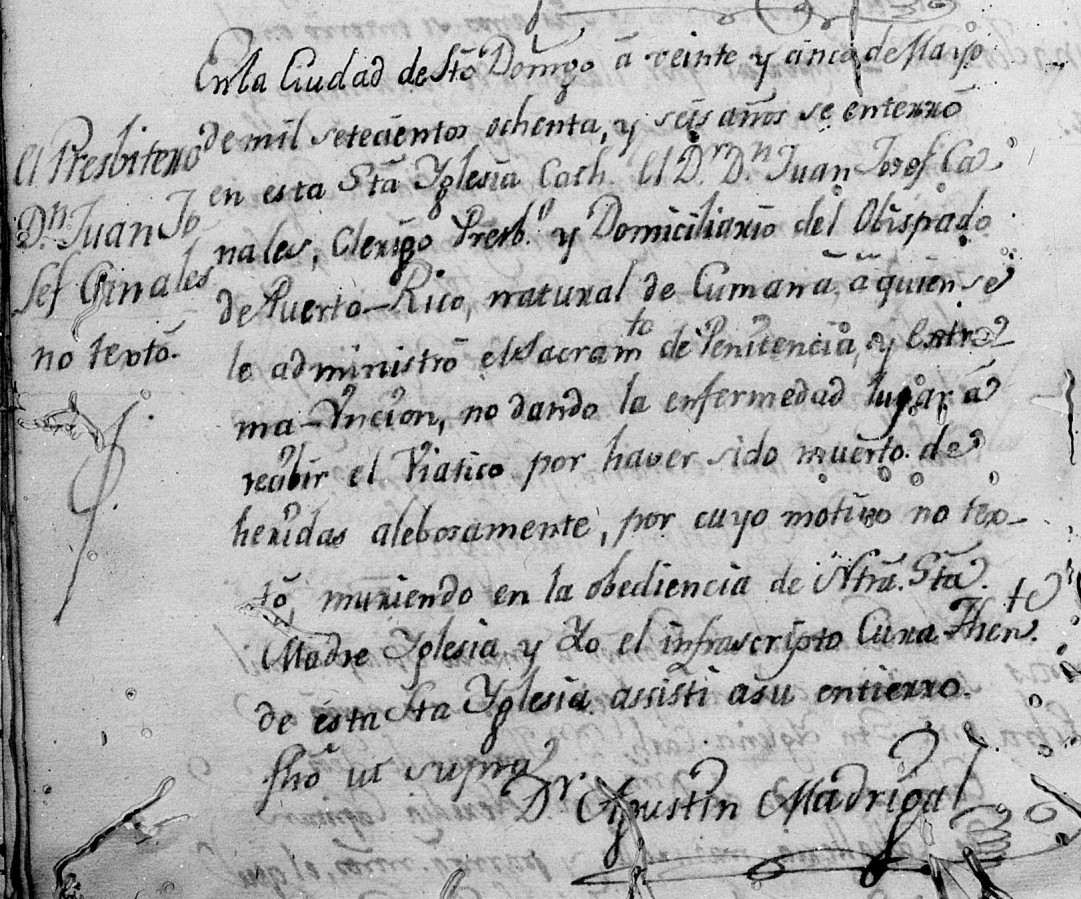 El Presbitero
Dn. Juan Jo
sef Canales
no textó.
En la Ciudad de Sto. Domingo á veinte y cinco de Mayo
de mil setecientos ochenta, y seis años se enterró
en esta Sta. Yglesia Cath. El Dr. Dn. Juan Josef Ca
nales, Clerigo Presb.o y Domiciliario del Obispado
de Puerto-Rico, natural de Cumana, á quien se
le administró el Sacramto. de Penitencia, y Extre
ma-Vncion, no dando la enfermedad lugar á
recibir el Viatico por haver sido muerto de
heridas alebosamente, por cuyo motivo no tex-
tó, muriendo en la obediencia de Ntra. Sta.
Madre Yglesia y Yo el infrascripto Cura Thente.
de ésta Sta Yglesia assisti asu entierro.
fhó ut supra
Dr. Agustin Madrigal